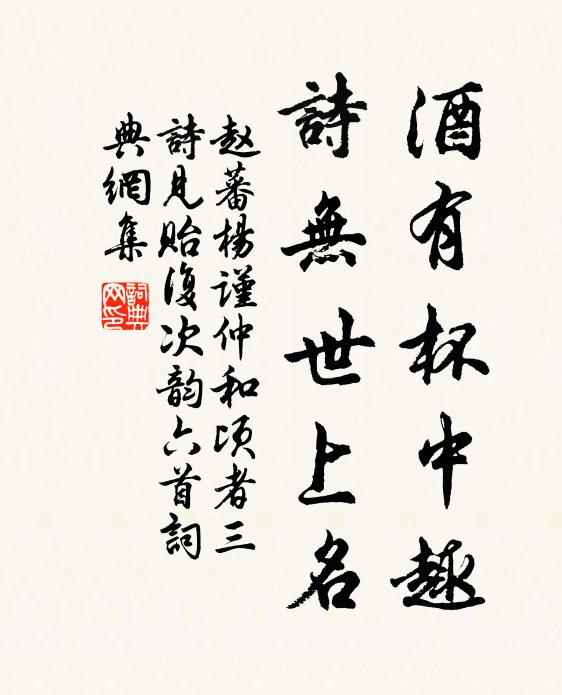 酒有杯中趣
詩無世上名
赵蕃楊謹仲和頃者三
詩見貽復次韵六首詞
典網集
詞典网印